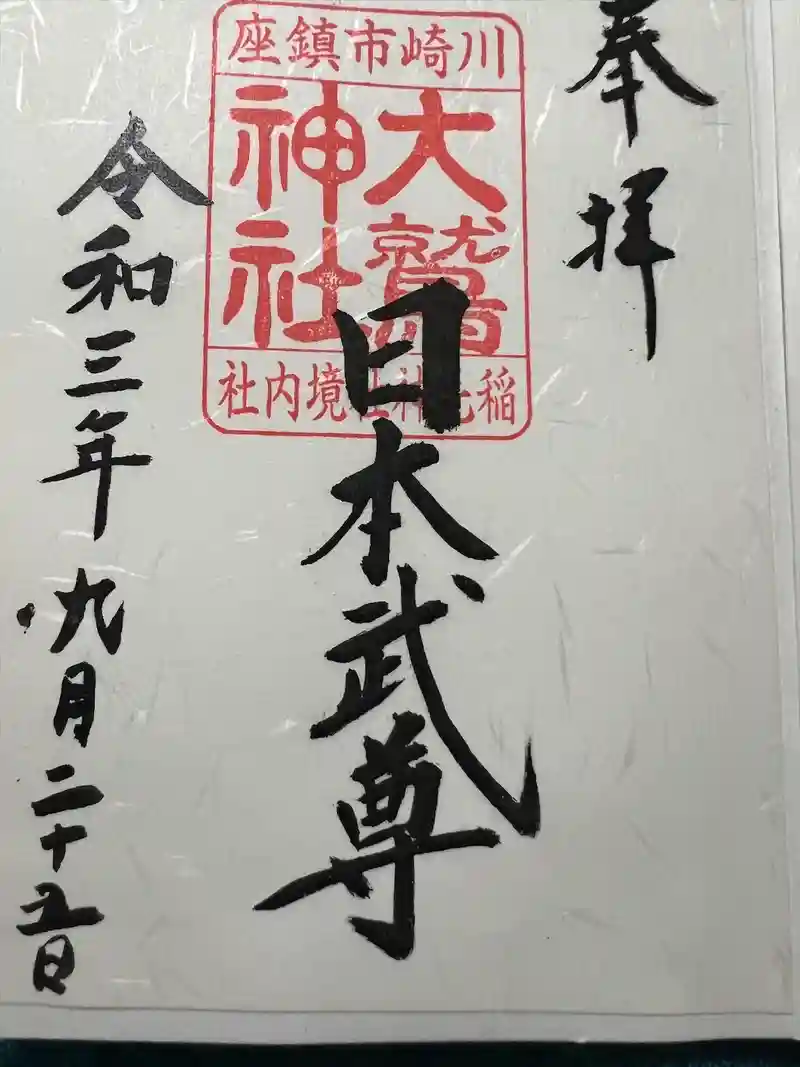 奉拝
川崎市鎮座
大鷲
神社
稲毛神社境内社
日本武尊
令和三年九月二十五日